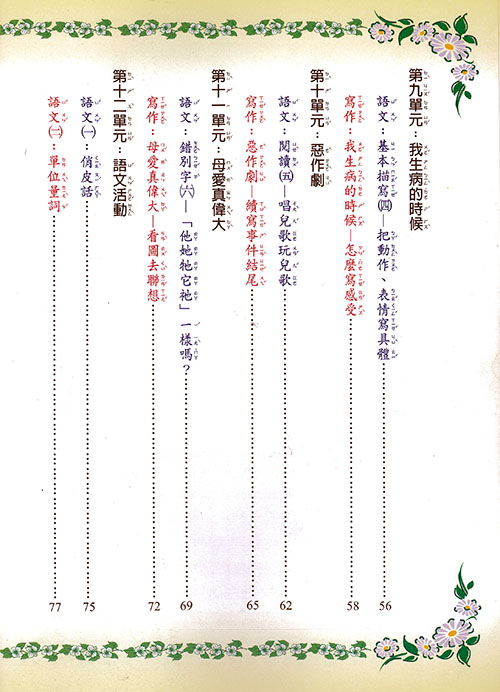 第九單元：我生病的時候
語文：基本描寫㈣—把動作、表情寫具體……56
寫作：我生病的時候—怎麼寫感受……58
第十單元：惡作劇
語文：閱讀㈤—唱兒歌玩兒歌……62
寫作：惡作劇—續寫事件結尾……65
第十一單元：母愛真偉大
語文：錯別字㈥—「他她牠它祂」一樣嗎？……69
寫作：母愛真偉大—看圖去聯想……72
第十二單元：語文活動
語文㈠：俏皮話……75
語文㈡：單位量詞……77